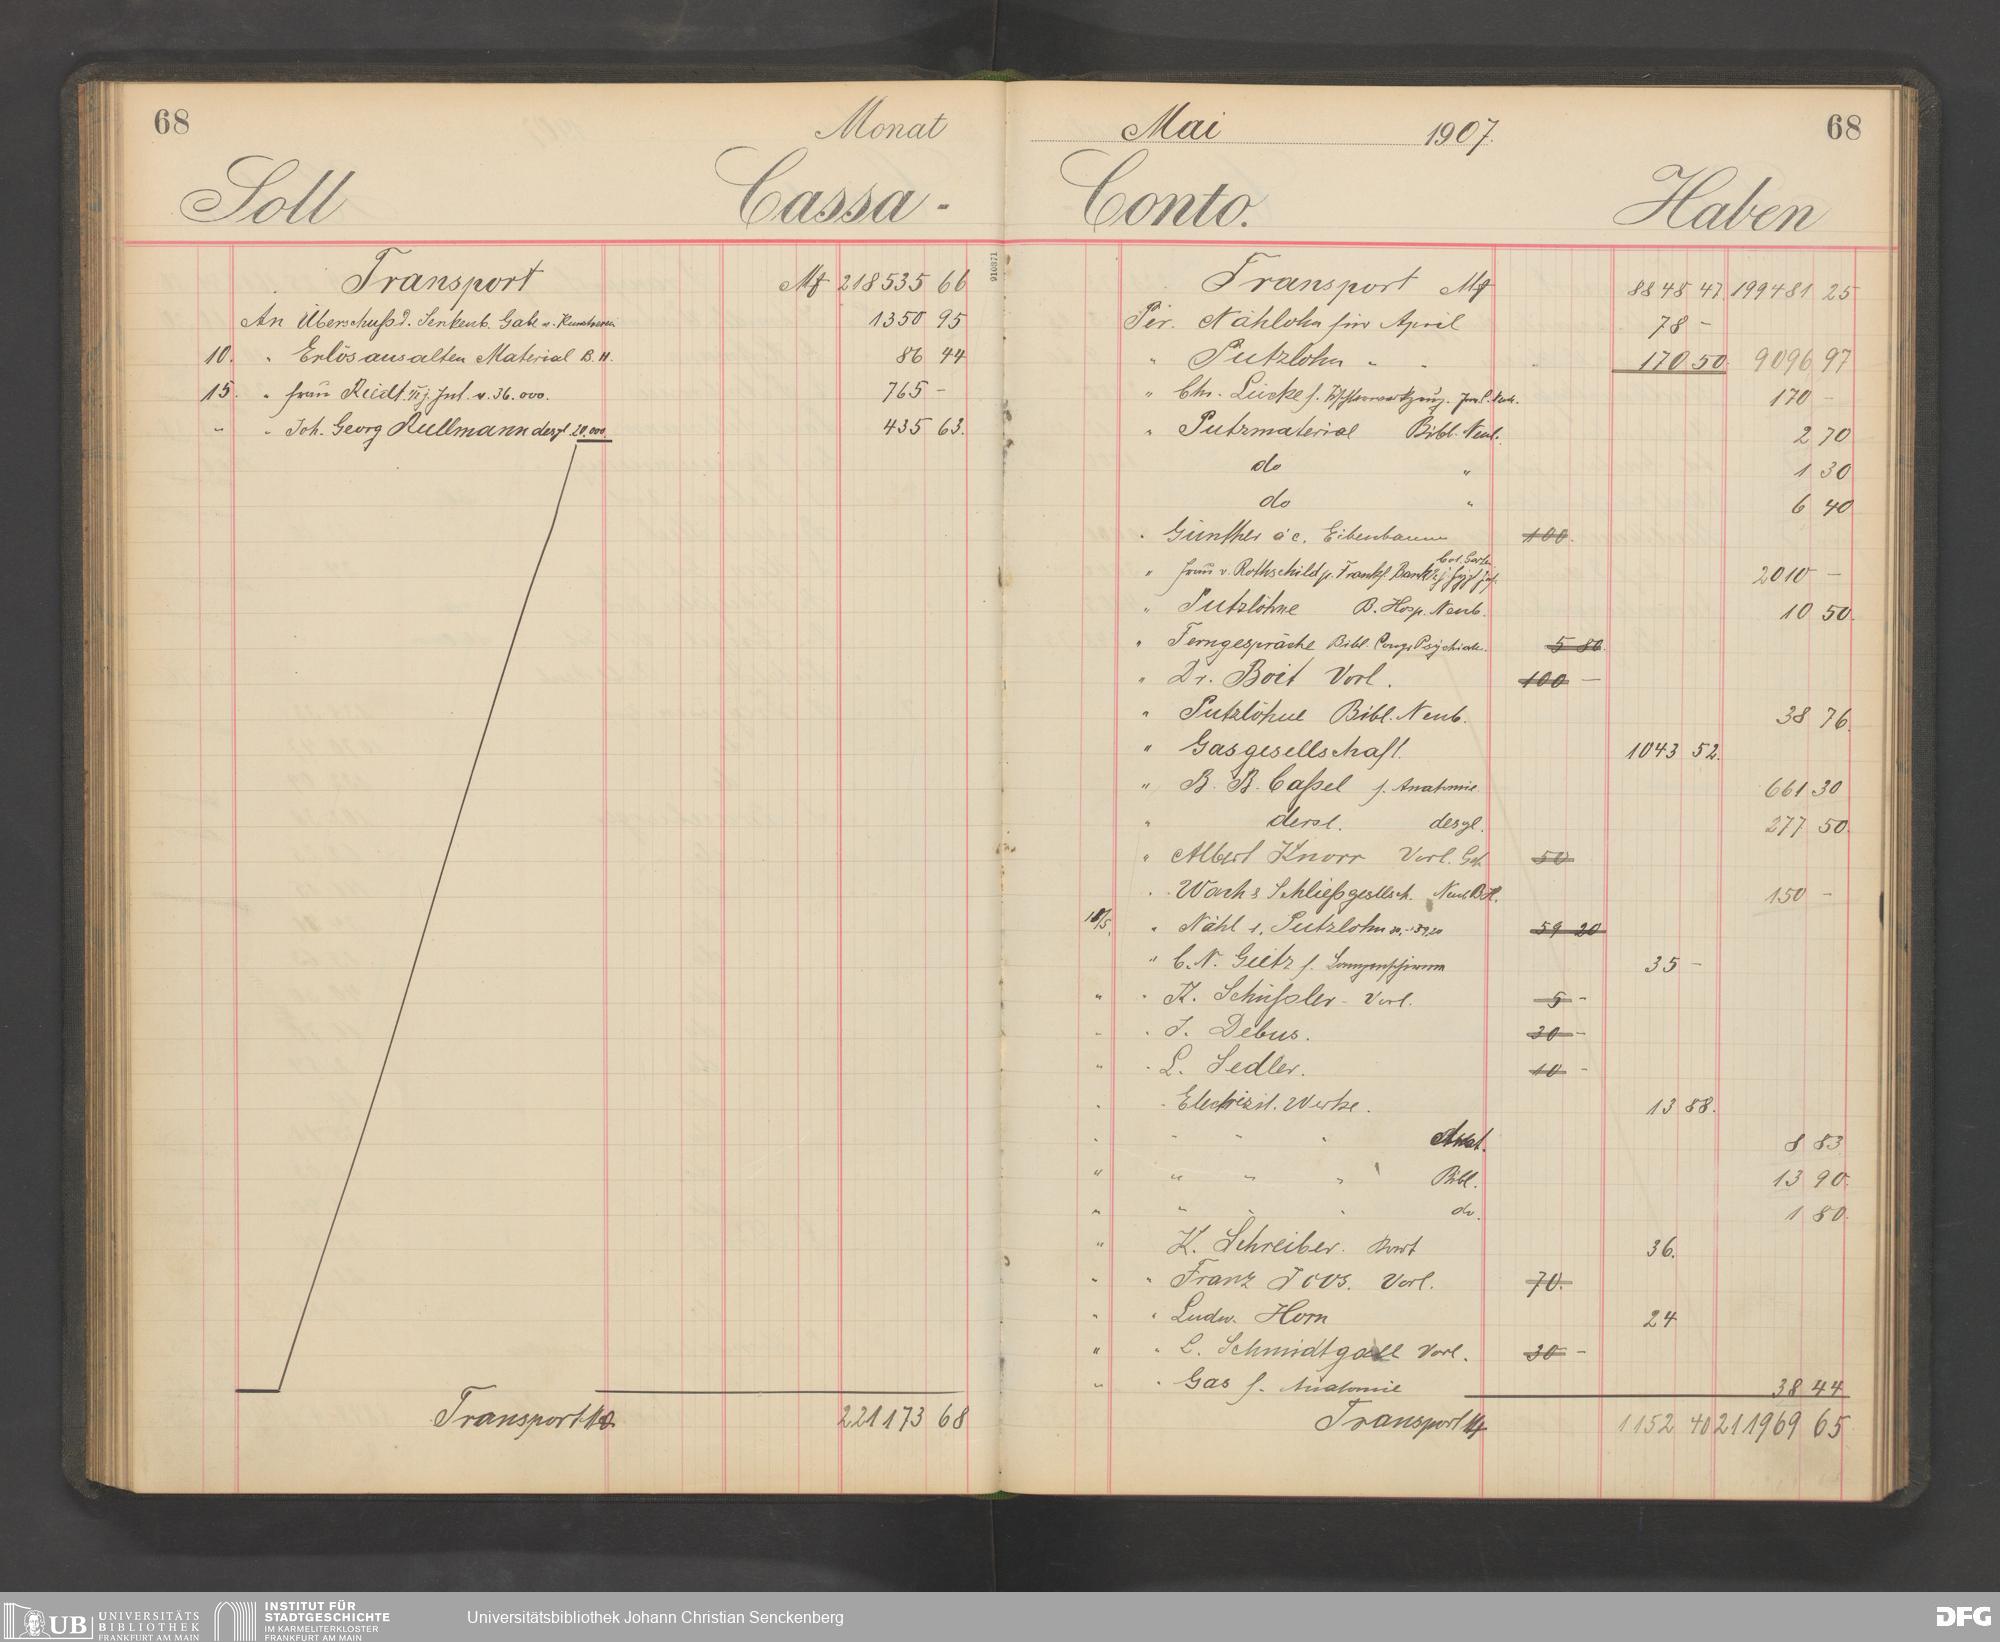 68
Monat
Soll
Cassa -
Transport Mk 218535 66
An Überschuß d. Senkenb. Gabe 1350 95
10. " Erlös aus alten Material B. H. 86 44
15. " Frau Reidt Int. v. 36.000. 765 -
" " Joh. Georg Rullmann desgl 20.000. 435 63.
Transport 221173 68
Mai 1907.
68
Conto.
Haben
910371
Transport Mk 8848 47 199481 25
Per. Nählohn für April 78 -
" Putzlohn " " 170 50. 9096 97
" Chr. Lücke f. 170 -
" Putzmaterial Bibl. Neub. 2 70
do " 1 30
do " 6 40
" Günther a c. Eibenbaum 100.
" Frau v. Rothschild p. Frankf. Bank Bot. Garten 2010 -
" Putzlöhne B. Hosp. Neub. 10 50.
" Ferngespräche Bibl. Psychiatr. 5 80.
" Dr. Boit Vorl. 100 -
" Putzlöhne Bibl. Neub. 38 76.
" Gasgesellschaft. 1043 52.
" B. B. Caßel f. Anatomie 661 30
" ders. desgl. 277 50.
" Albert Knorr Vorl. 50
" Wach & Schließgesellsch. Neub B.H. 150 -
18/5. " Nähl u. Putzlohn 59 20
" C. N. Gietz f. Lampenschirm 35 -
" " K. Schüssler - Vorl. 5 -
" " J. Debus. 30 -
" " L. Sedler. 10 -
" " Electrizit. Werke. 13 88.
" " " " Anat. 8 83
" " " " Bibl. 13 90.
" " " " do. 1 80.
" K. Schreiber. 36.
" " Franz Joos. Vorl. 70.
" " Ludw. Horn 24
" " L. Schmidtgall Vorl. 30 -
" " Gas f. Anatomie 38 44
Transport Mk 1152 40 211969 65
UB UNIVERSITÄTS
BIBLIOTHEK
FRANKFURT AM MAIN
INSTITUT FÜR
STADTGESCHICHTE
IM KARMELITERKLOSTER
FRANKFURT AM MAIN
Universitätsbibliothek Johann Christian Senckenberg
DFG